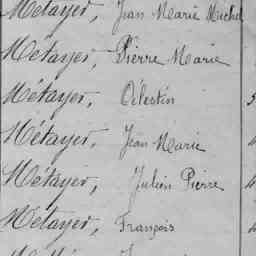 Métayer, Jean Marie Michel
Métayer, Pierre Marie
Métayer, Célestin
Métayer, Jean Marie
Métayer, Julien Pierre
Métayer, François